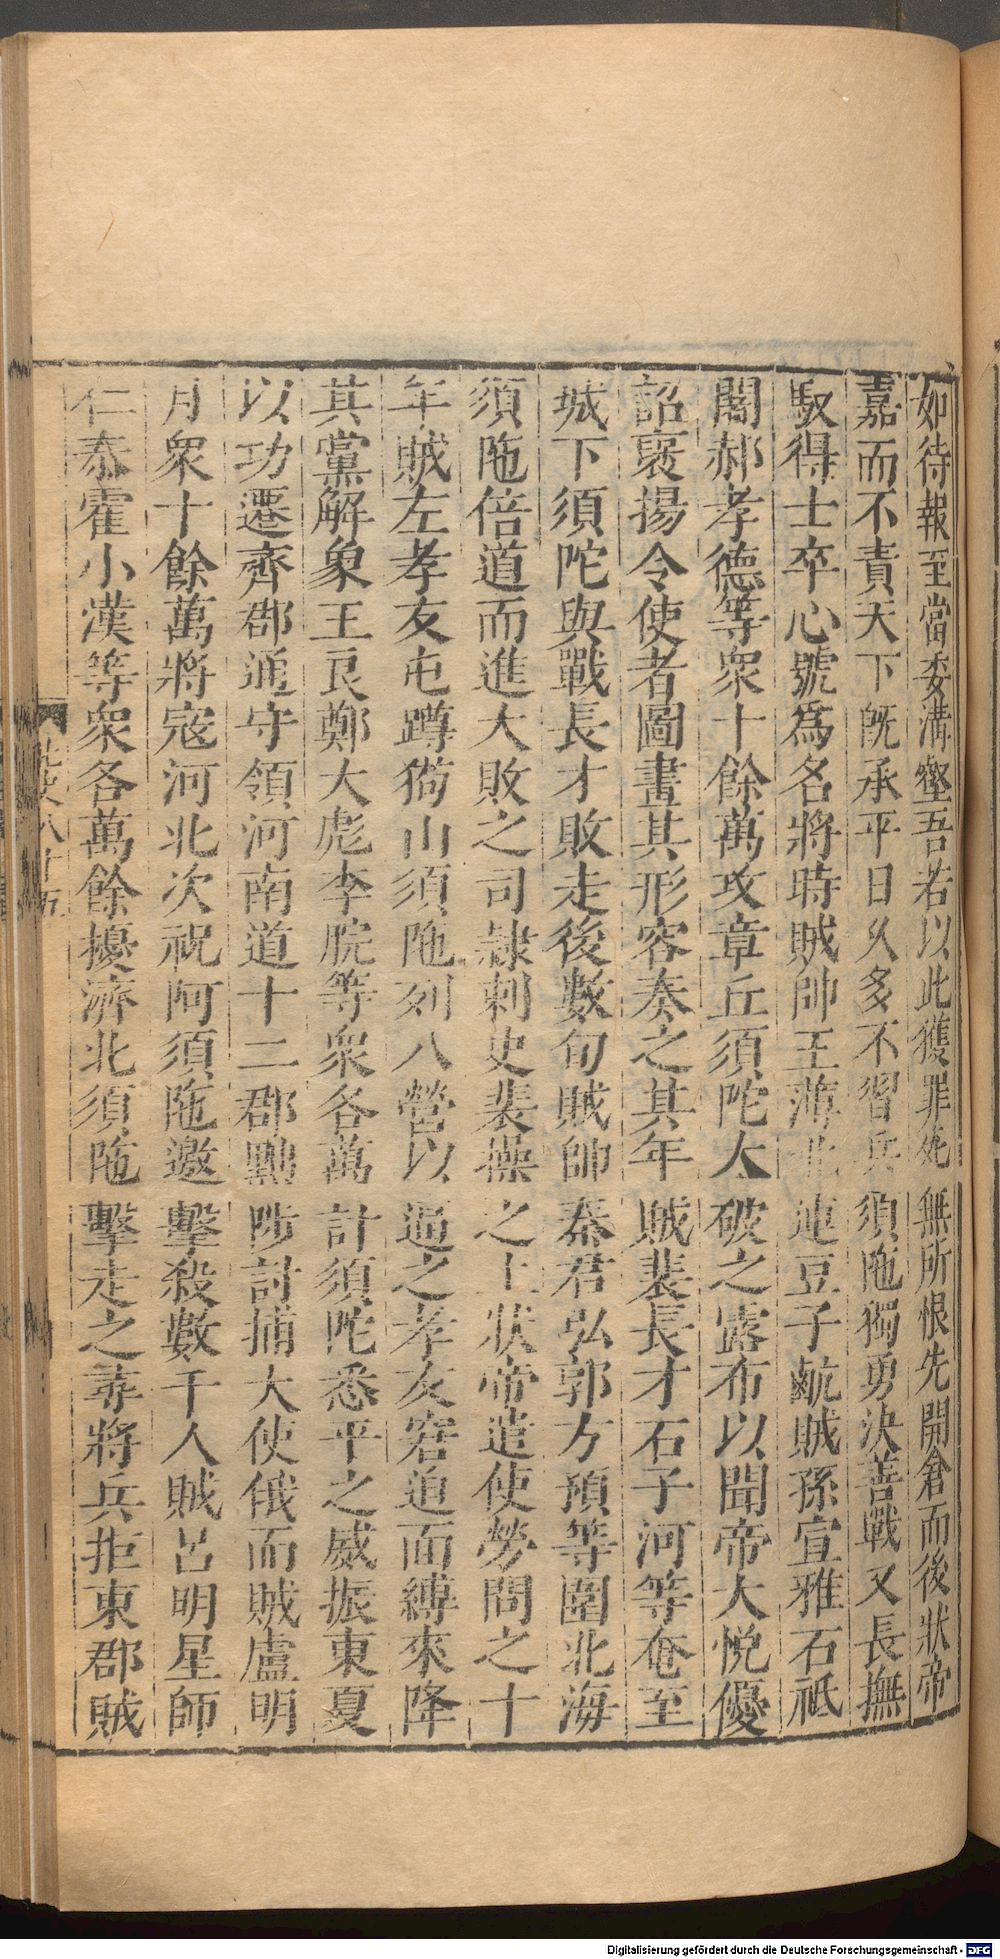 如待報至當委溝壑吾若以此獲罪死無所恨先開倉而後狀帝
嘉而不責天下旣承平日久多不習兵須陁獨勇決善戰又長撫
馭得士卒心號爲名將時賊帥王薄北連豆子䴚賊孫宣雅石祗
闍郝孝德等衆十餘萬攻章丘須陀大破之露布以聞帝大悅優
詔褒揚令使者圖畫其形容奏之其年賊裴長才石子河等奄至
城下須陀與戰長才敗走後數旬賊帥秦君弘郭方預等圍北海
須陁倍道而進大敗之司隸刺史裴操之上狀帝遣使勞問之十
年賊左孝友屯蹲狗山須陁列八營以逼之孝友窘迫面縛來降
其黨解象王良鄭大彪李脘等衆各萬計須陀悉平之威振東夏
以功遷齊郡通守領河南道十二郡黜陟討捕大使俄而賊盧明
月衆十餘萬將寇河北次祝阿須陁邀擊殺數千人賊呂明星師
仁泰霍小漢等衆各萬餘擾濟北須陁擊走之尋將兵拒東郡賊
北史八十五
Digitalisierung gefördert durch die Deutsche Forschungsgemeinschaft - DFG